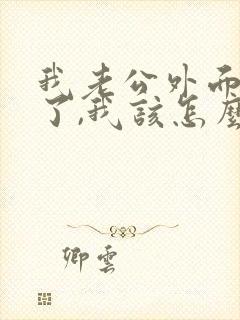 我老公外面
了,我该怎麼
卿雲